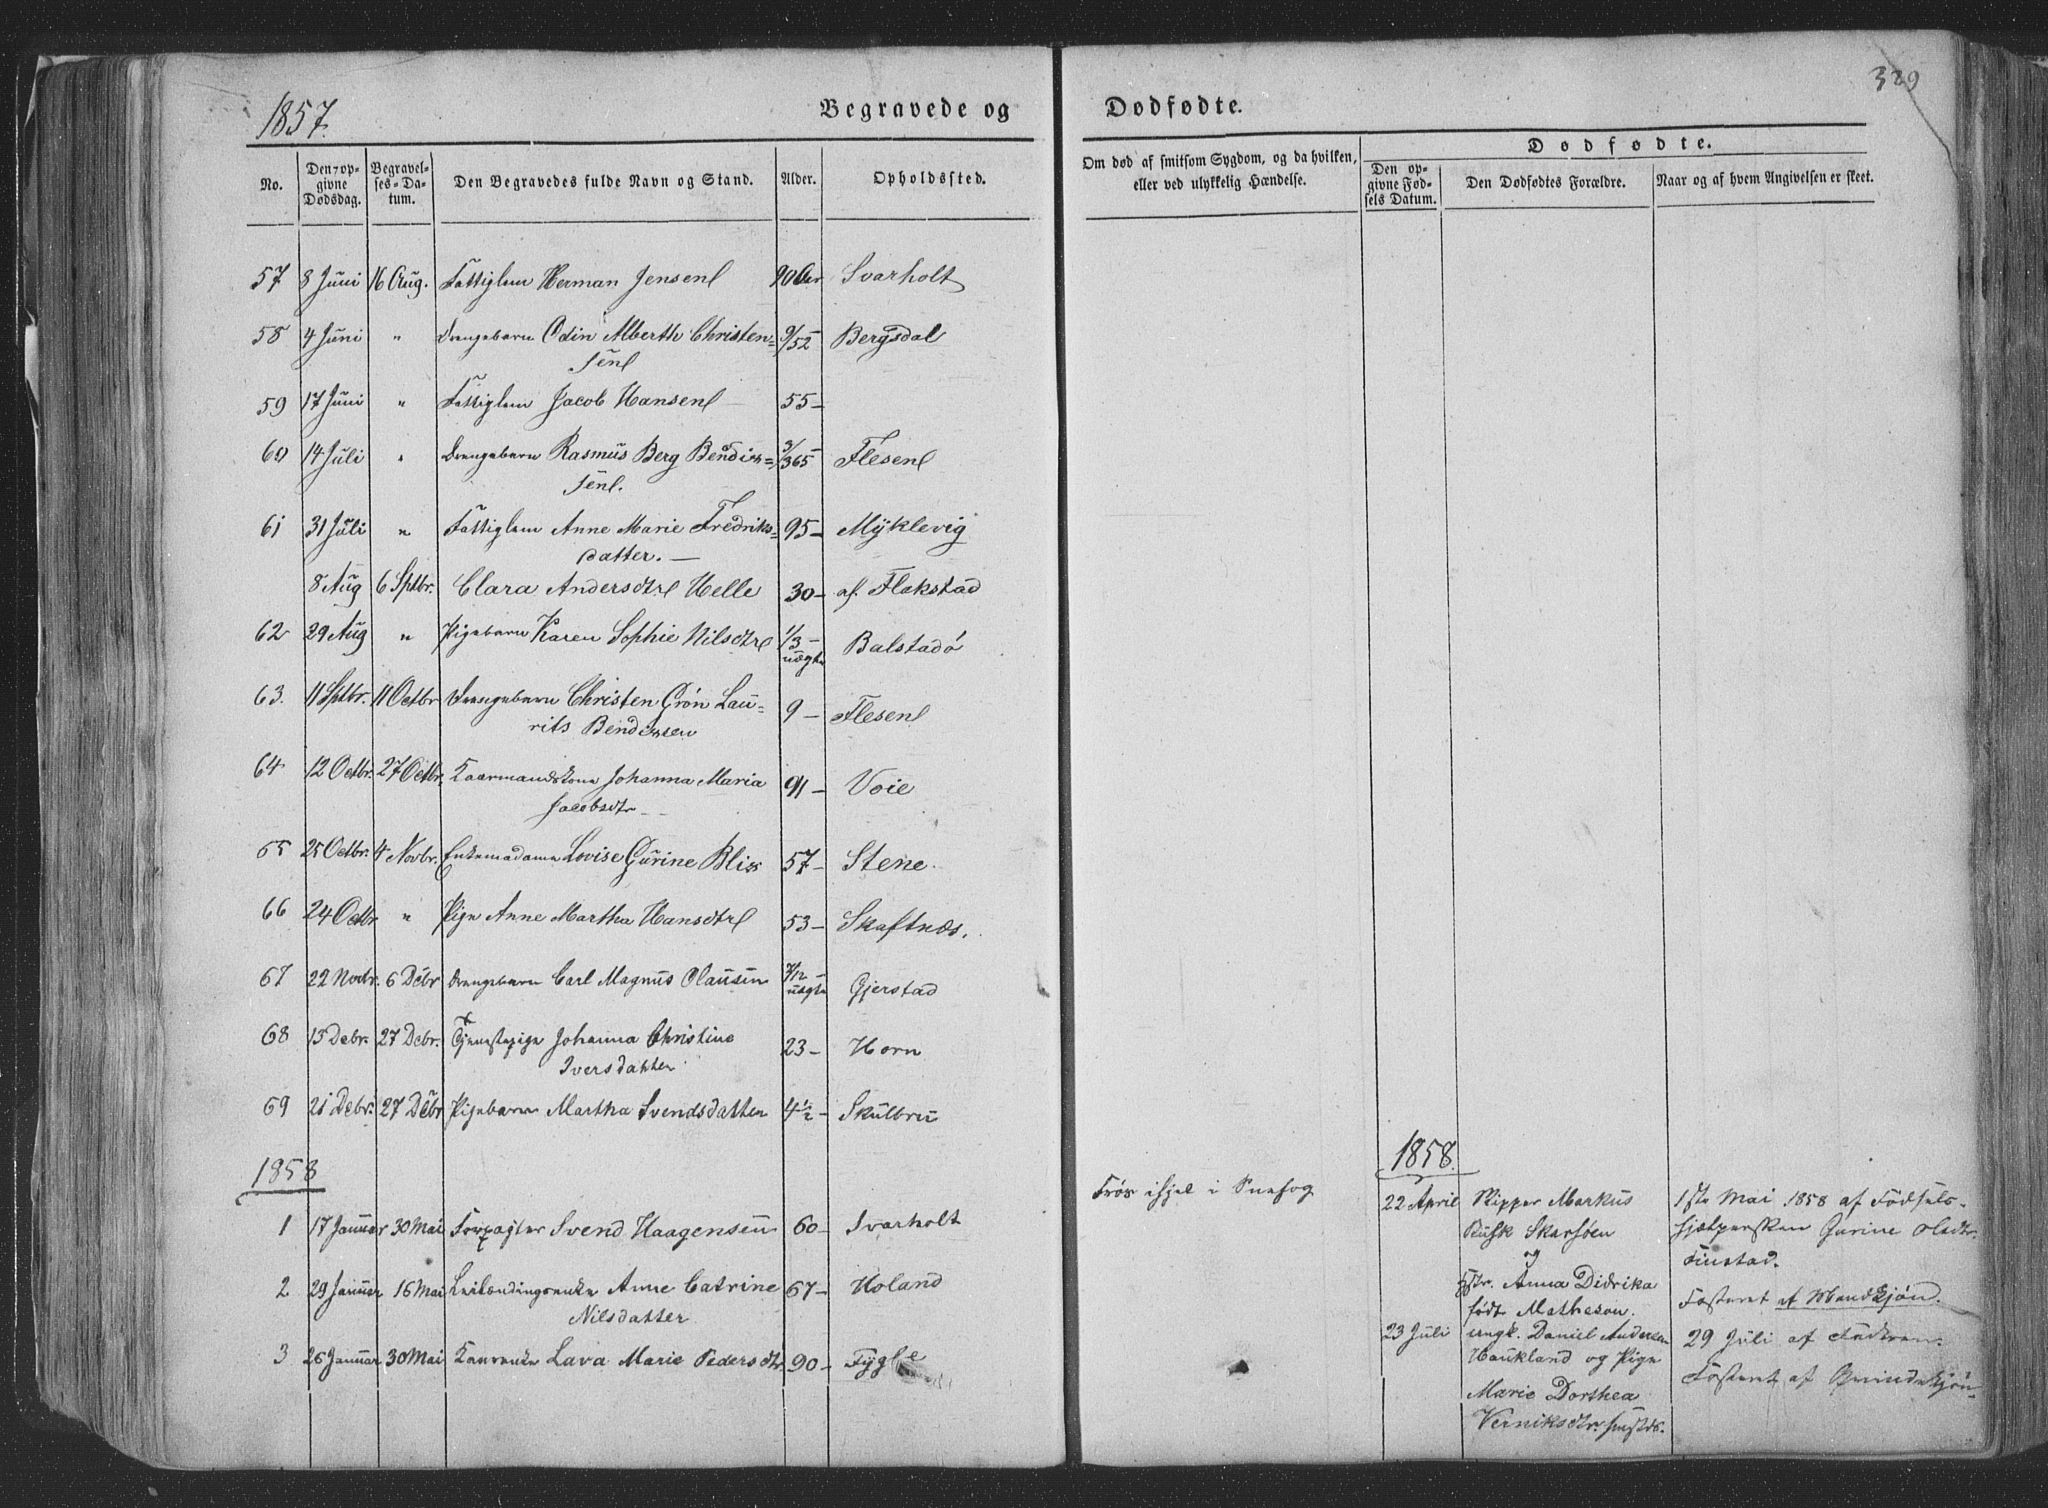 329
1857.
Begravede og
Dødfødte.
No.
Den opgivne Dødsdag.
Begravelses-Datum.
Den Begravedes fulde Navn og Stand.
Alder.
Opholdssted.
Om død af smitsom Sygdom, og da hvilken, eller ved ulykkelig Hændelse.
Dødfødte.
Den opgivne Fødsels Datum.
Den Dødfødtes Forældre.
Naar og af hvem Angivelsen er skeet.
57 8 Juni 16 Aug. Fattiglem Herman Jensen 90 Aar Svarholt
58 4 Juni " Drengebarn Odin Alberth Christen=
sen 9/52 Bergsdal
59 17 Juni " Fattiglem Jacob Hansen 55-
60 14 Juli " Drengebarn Rasmus Berg Bendix=
sen. 3/365 Flesen
61 31 Juli " Fattiglem Anne Marie Fredriks=
datter. 95- Myklevig
8 Aug 6 Sptbr. Clara Andersdtr Helle 30- af Flakstad
62 29 Aug " Pigebarn Karen Sophie Nilsdtr 1/3 -
uægte Balstadø
63. 11 Sptbr. 11 Octbr Drengebarn Christen Grøn Lau=
rits Bendixsen 9 - Flesen
64 12 Octbr. 27 Octbr. Kaarmandskone Johanna Maria
Jacobsdtr 91 - Voie
65 25 Octbr. 4 Novbr. Enkemadame Lovise Gurine Blix 57- Stene
66 24 Octbr " Pige Anne Martha Hansdtr 53- Skaftnæs.
67 22 Novbr. 6 Debr Drengebarn Carl Magnus Olausen 7/12 -
uægte Gjerstad
68 15 Debr. 27 Debr. Tjenestepige Johanna Christine
Iversdatter 23- Horn
69 21 Debr. 27 Debr Pigebarn Martha Svendsdatter 4½- Skulbru
1858
1 17 Januar 30 Mai Forpagter Svend Haagensen 60- Svarholt
Frøs ihjel i Snefog
2 29 Januar 16 Mai Leilændingsenke Anne Catrine
Nilsdatter 67- Holand
3 26 Januar 30 Mai Kaarenke Lava Marie Pedersdtr 90- Fygle
1858.
22 April Skipper Markus
Rusk Skarsøen
og
Hstr. Anna Didrika
født Matheson.
1ste Mai 1858 af Fødsels-
hjælpersken Gurine Olsdtr.
Finstad.
Fosteret af Mandkjøn.
23 Juli ungk. Daniel Andersen
Haukland og Pige
Marie Dorthea
Verniksdtr.
29 Juli af Faderen.
Fosteret af Qvindekjøn.